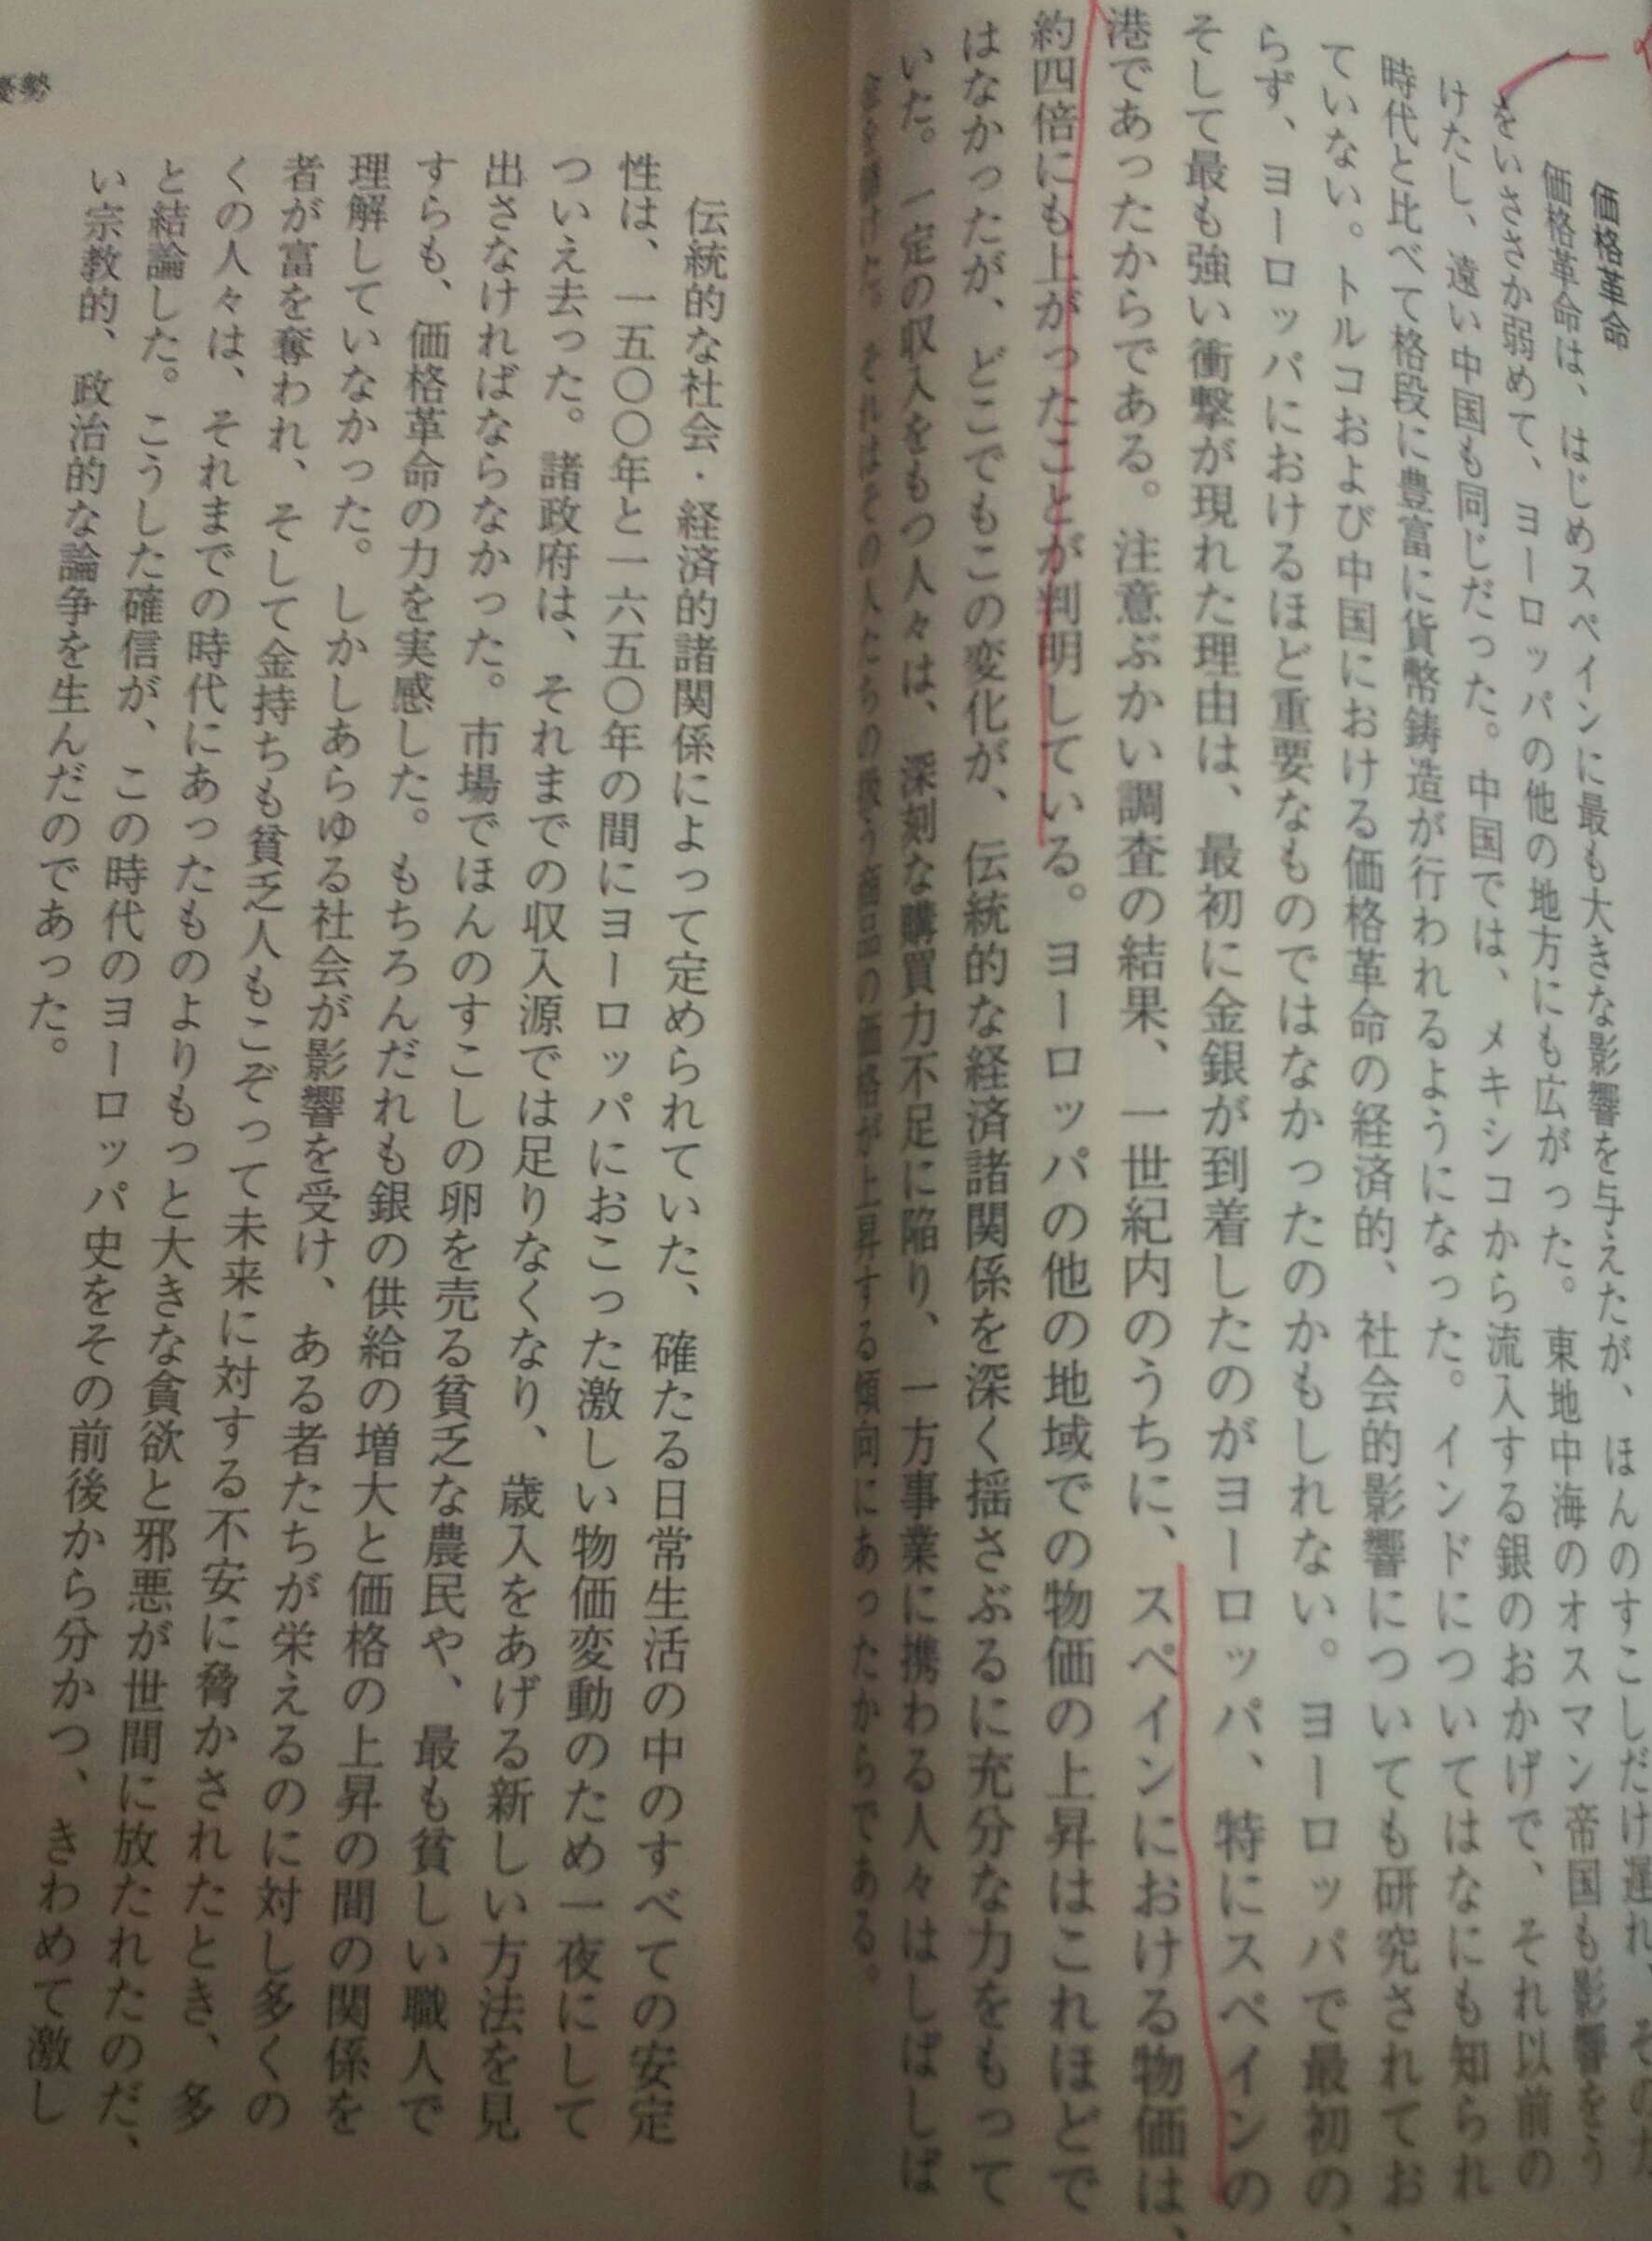 価格革命
価格革命は、はじめスペインに最も大きな影響を与えたが、ほんのすこしだけ遅れ、その力
をいささか弱めて、ヨーロッパの他の地方にも広がった。東地中海のオスマン帝国も影響をう
けたし、遠い中国も同じだった。中国では、メキシコから流入する銀のおかげで、それ以前の
時代と比べて格段に豊富に貨幣鋳造が行われるようになった。インドについてはなにも知られ
ていない。トルコおよび中国における価格革命の経済的、社会的影響についても研究されてお
らず、ヨーロッパにおけるほど重要なものではなかったのかもしれない。ヨーロッパで最初の、
そして最も強い衝撃が現れた理由は、最初に金銀が到着したのがヨーロッパ、特にスペインの
港であったからである。注意ぶかい調査の結果、一世紀内のうちに、スペインにおける物価は、
約四倍にも上がったことが判明している。ヨーロッパの他の地域での物価の上昇はこれほどで
はなかったが、どこでもこの変化が、伝統的な経済諸関係を深く揺さぶるに充分な力をもって
いた。一定の収入をもつ人々は、深刻な購買力不足に陥り、一方事業に携わる人々はしばしば
それはその人たちの扱う商品の価格が上昇する傾向にあったからである。
優勢
伝統的な社会・経済的諸関係によって定められていた、確たる日常生活の中のすべての安定
性は、一五〇〇年と一六五〇年の間にヨーロッパにおこった激しい物価変動のため一夜にして
ついえ去った。諸政府は、それまでの収入源では足りなくなり、歳入をあげる新しい方法を見
出さなければならなかった。市場でほんのすこしの卵を売る貧乏な農民や、最も貧しい職人で
すらも、価格革命の力を実感した。もちろんだれも銀の供給の増大と価格の上昇の間の関係を
理解していなかった。しかしあらゆる社会が影響を受け、ある者たちが栄えるのに対し多くの
者が富を奪われ、そして金持ちも貧乏人もこぞって未来に対する不安に脅かされたとき、多
くの人々は、それまでの時代にあったものよりもっと大きな貪欲と邪悪が世間に放たれたのだ、
と結論した。こうした確信が、この時代のヨーロッパ史をその前後から分かつ、きわめて激し
い宗教的、政治的な論争を生んだのであった。